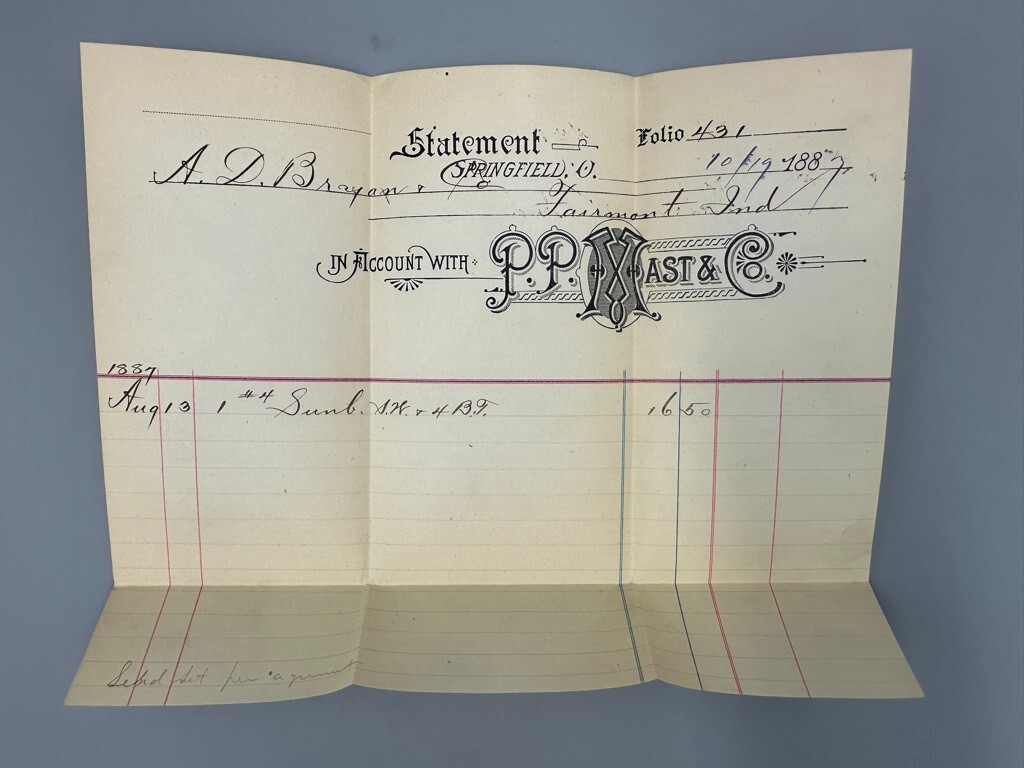 Statement
Folio 431
SPRINGFIELD, O. 10/19 1887
A. D. Brayan & Co
Fairmont Ind
IN ACCOUNT WITH P. P. MAST & CO.
1887
Aug 13 1 #4 Sunb. S.W. & 4 B.T. 16 50
Send set per